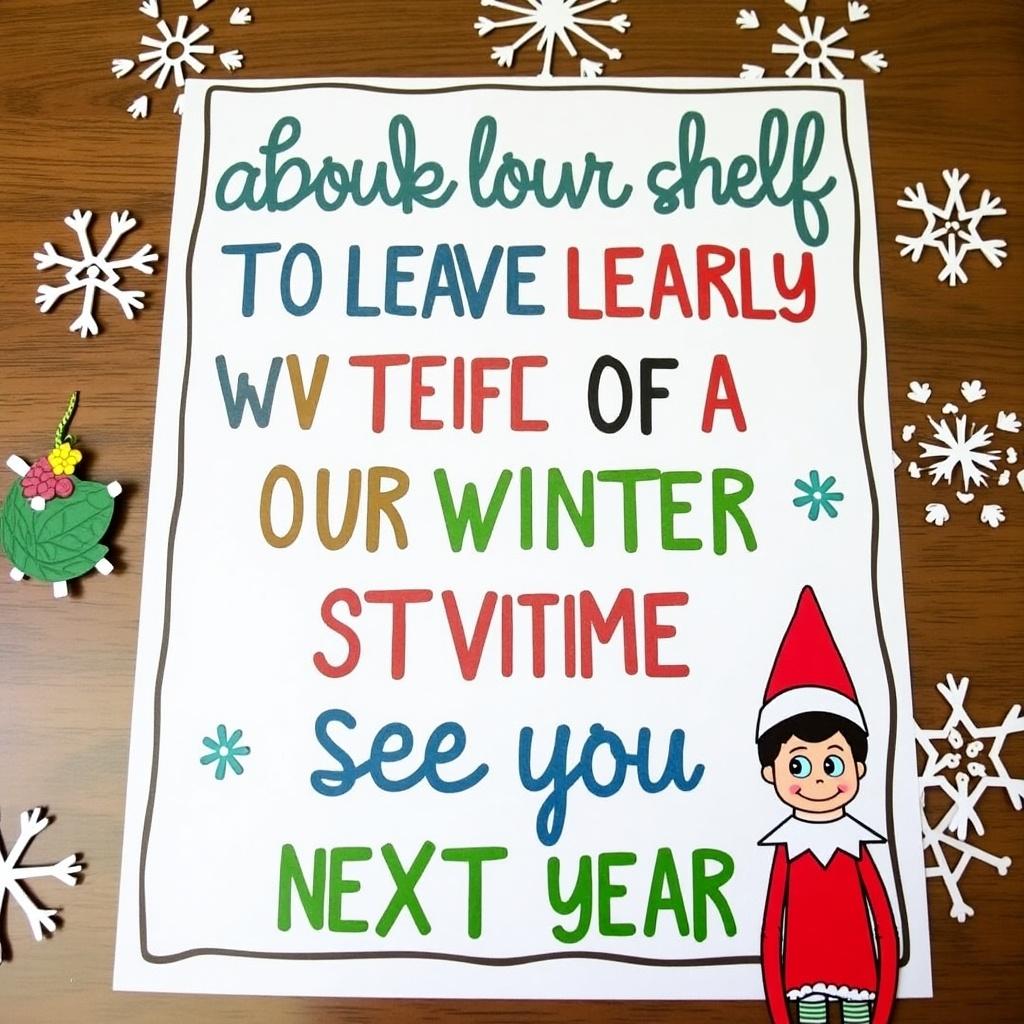 abouk lour shelf
TO LEAVE LEARLY
WV TEIFC OF A
OUR WINTER
STVITIME
see you
NEXT YEAR